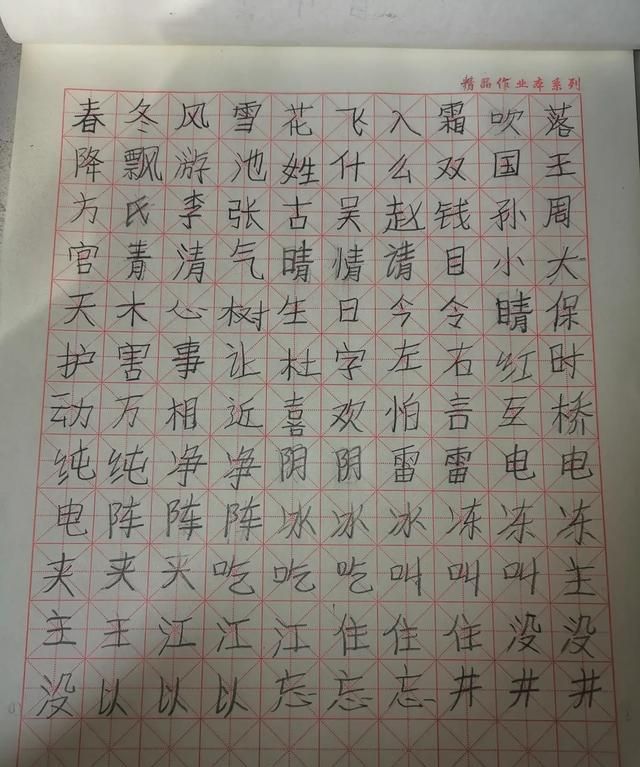 精品作业本系列
春冬风雪花飞入霜吹落
降飘游池姓什么双国王
方氏李张古吴赵钱孙周
官青清气晴情请目小大
天木心树生日今令睛保
护害事让杜字左右红时
动万相近喜欢怕言互桥
纯纯净净阴阴雷雷电电
电阵阵阵冰冰冰冻冻冻
夹夹夹吃吃吃叫叫叫主
主王江江江住住住没没
没以以以忘忘忘井井井